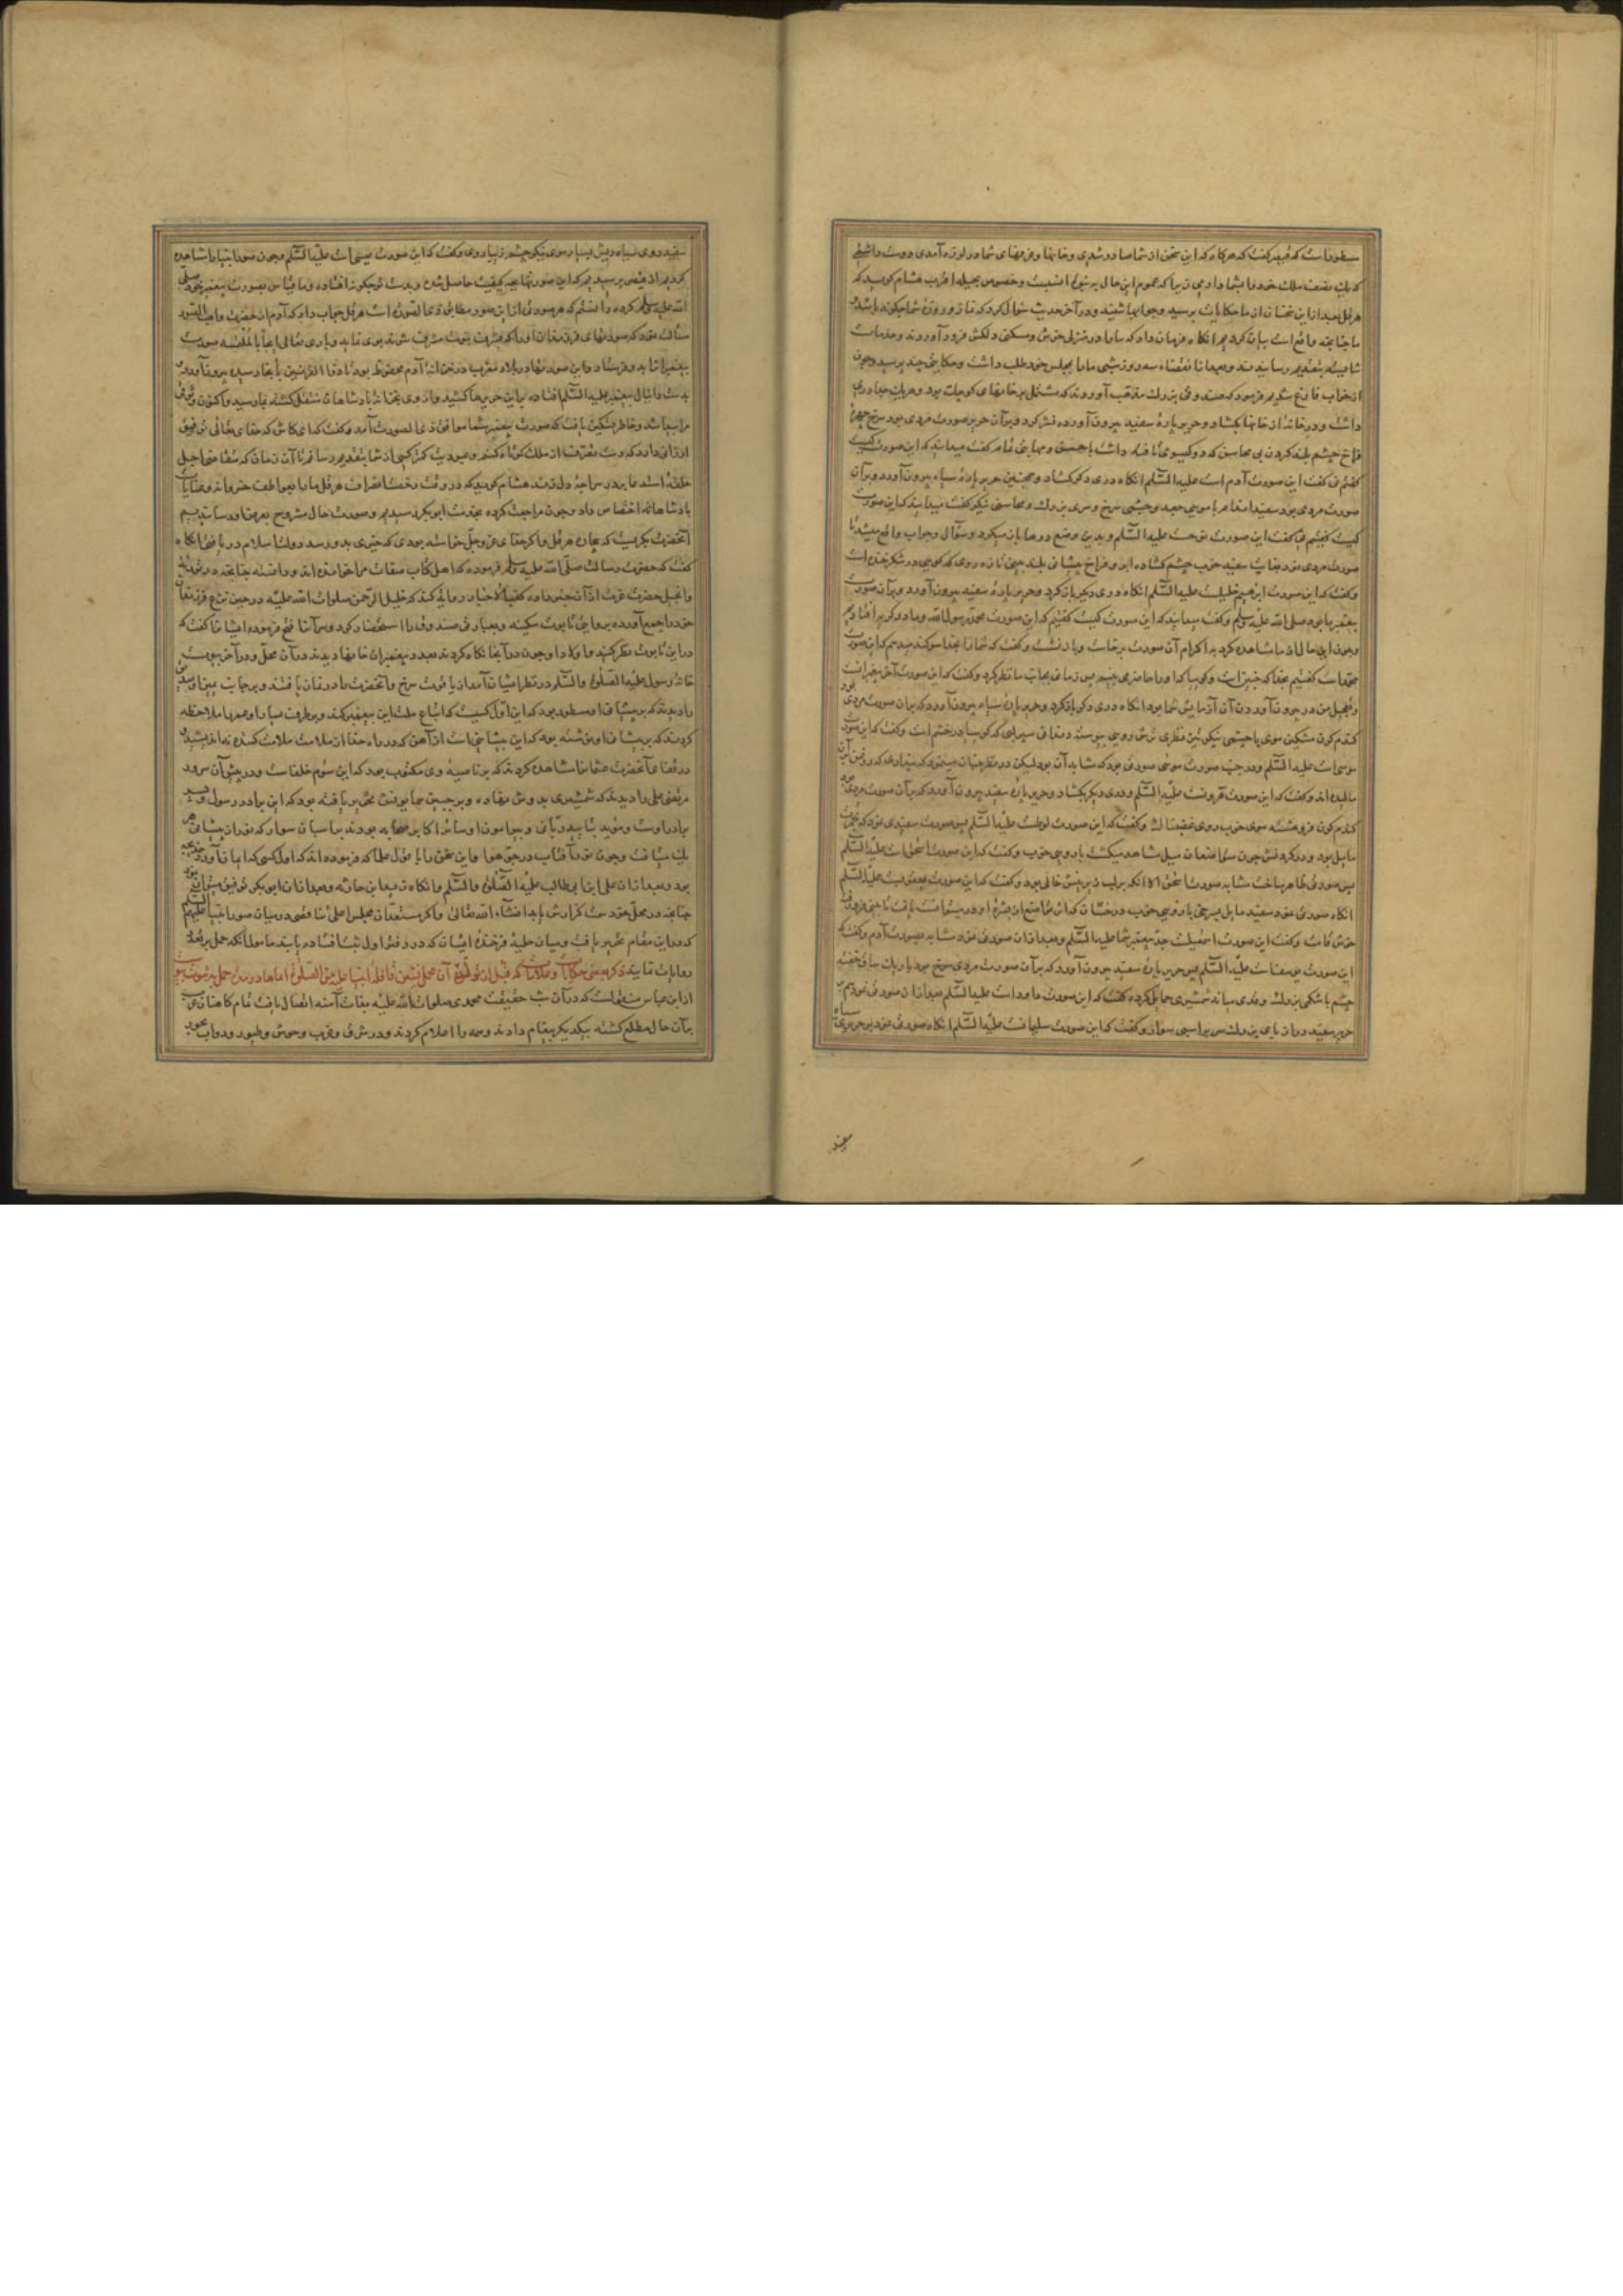 مسطور است که قیصر گفت که هرگاه که این سخن از شما صادر شدی و خانها و غرفهای شما در لرزه آمدی دوست داشتمی
که یک نصف ملک خود را بشما دادمی زیرا که عموم این حال به نبوت انسبت و خصوص بحیله اقرب هشام گوید که
هرقل بعد از این سخنان از ما حکایات پرسید و جوابها شنید و در آخر حدیث سؤال کرد که نماز و روزه شما چگونه باشد
ما چنانچه واقع است بیان کردیم آنگاه فرمان داد که ما را در منزلی خوش و مسکنی دلکش فرود آوردند و خدمات
شایسته بتقدیم رسانیدند و بعد از انقضاء سه روز شبی ما را بمجلس خود طلب داشت و حکایتی چند پرسید و چون
از جواب فارغ شدیم فرمود که صندوقی بزرگ مذهب آوردند که مشتمل بر خانهای کوچک بود و هر یک جدا دری
داشت و در خانه از خانها بگشاد و حریر پاره سفید بیرون آورده نشر کرد و بر آن حریر صورت مردی بود سرخ چهره
فراخ چشم بلند گردن بی محاسن که دو گیسوی تافته داشت با حسن و بهایی تمام گفت میدانید که این صورت کیست
گفتم نی گفت این صورت آدم است علیه السلام آنگاه دری دیگر گشاد و همچنین حریر پاره سیاه بیرون آورد و بر آن
صورت مردی بود سفید اندام با مویی جعد و چشمی سرخ و سری بزرگ و محاسنی نیکو گفت میدانید که این صورت
کیست گفتیم نی گفت این صورت نوحست علیه السلام و بدین وضع درها باز میکرد و سؤال و جواب واقع میشد تا
صورت مردی نمود بغایت سفید خوب چشم گشاده ابرو فراخ پیشانی بلند بینی تازه روی که گویی در شکر خنده است
و گفت که این صورت ابراهیم خلیلست علیه السلام آنگاه دری دیگر باز کرد و حریر پاره سفید بیرون آورد و بر آن صورت
پیغمبر ما بود صلی الله علیه وسلم و گفت میدانید که این صورت کیست گفتیم که این صورت محمد رسول الله و ما را گریه افتاد
و چون این حال از ما مشاهده کرد به اکرام آن صورت برخاست و باز نشست و گفت که شما را بخدا سوگند میدهم که این صورت
محمد است گفتیم بخدا که چنین است و گویا که او را حاضر می بینیم پس زمانی بجانب ما نظر کرد و گفت که این صورت آخر پیغمبرانست
و تعجیل من در بیرون آوردن آن آزمایش شما بود آنگاه دری دیگر باز کرد و حریر پاره سیاه بیرون آورد که بر آن صورت مردی بود
گندم گون مشکین موی با چشمی نیکو تیز نظری ترش رویی پیوسته دندانی سبزلبی که گویا در خشم است و گفت که این صورت
موسی است علیه السلام و در جنب صورت موسی صورتی بود که مشابه آن بود لیکن در نظر چنان مینمود که پنداری که روغن بر آن
مالیده اند و گفت که این صورت هرونست علیه السلام و دری دیگر بگشاد و حریر پاره سفید بیرون آورد که بر آن صورت مردی بود
گندم گون فروهشته موی خوب روی غضبناک و گفت که این صورت لوطست علیه السلام پس صورت سفیدی نمود که بحمرت
مایل بود و در گردنش چون متواضعان میل مشاهده میگشت با رویی خوب و گفت که این صورت اسحق است علیه السلام
پس صورتی ظاهر ساخت مشابه صورت اسحق الا آنکه بر لب زیرینش خالی بود و گفت که این صورت یعقوبست علیه السلام
آنگاه صورتی نمود سفید مایل بسرخی با رویی خوب درخشان که آثار تواضع از بشره او در میتوانست یافت با بینی فرو
خوش قامت و گفت این صورت اسمعیلست جد پیغمبر شما علیه السلام و بعد از آن صورتی نمود مشابه بصورت آدم و گفت که
این صورت یوسفست علیه السلام پس حریر پاره سفید بیرون آورد که بر آن صورت مردی سرخ بود باریک ساق خفته
چشم با شکمی بزرگ و قدی میانه شمشیری حمایل کرده گفت که این صورت داود است علیه السلام بعد از آن صورتی نمود بر
حریر سفید دراز پای بزرگ سرین بر اسبی سوار و گفت که این صورت سلیمانست علیه السلام آنگاه صورتی نمود بر حریری سیاه
سفید روی سیاه ریش بسیار موی نیکو چشم زیبا روی و گفت که این صورت عیسی است علیه السلام و چون صور انبیا را مشاهده
کردیم از قیصر پرسیدیم که این صورتها بچه کیفیت حاصل شده و بدست تو چگونه افتاده و ما قیاس بصورت پیغمبر خود صلی
الله علیه وسلم کرده دانستیم که هر صورتی از این صور مطابق ذی الصورة است هرقل جواب داد که آدم از حضرت واهب الصور
مسألت نمود که صورتهای فرزندان او را که بشرف نبوت مشرف شوند بوی نماید و باری تعالی
پیغمبران را بدو فرستاد و این صور در بلاد مغرب در خزانه آدم محفوظ بود تا ذو القرنین بآنجا رسیده بیرون آورد
بدست دانیال پیغمبر علیه السلام افتاد
مراد باشد و خاطر تسکین یافت که صورت پیغمبر شما موافق ذی الصورت آمد و گفت که ای کاش که خدای تعالی توفیق
ارزانی دارد که دست تصرف از ملک کوتاه کنم و عبودیت کمتر کسی از شما بتقدیم رسانم تا آن زمان که متقاضی اجل
حلقه بر در سراچه دل زند هشام گوید که در وقت رخصت انصراف هرقل ما را بعواطف خسروانه و عنایات
پادشاهانه اختصاص داد و چون مراجعت کرده بخدمت ابو بکر رسیدیم و صورت حال مشروح بعرض رسانیدیم
آنحضرت بگریست که بیچاره هرقل و اگر خدای عز وجل خواسته بودی که خیری بدو رسد دولت اسلام دریافتی آنگاه
گفت که حضرت رسالت صلی الله علیه وسلم فرموده که اهل کتاب صفات مرا خوانده اند و دانسته چنانچه در توریة
و انجیل حضرت عزت از آن خبر داده کعب الاحبار روایت کند که خلیل الرحمن صلوات الله علیه در حین نزع فرزندان
خود را جمع آورده بروایتی تابوت سکینه و بعبارتی صندوقی را استحضار کرد و سر آنرا فتح فرموده ایشانرا گفت که
در این تابوت نظر کنید و اولاد او چون در آنجا نگاه کردند بعدد پیغمبران خانها دیدند در آن محل و در آخر بیوت
خانه رسول علیه الصلوة والسلم در نظر ایشان آمد از یاقوت سرخ و آنحضرت را در نماز یافتند و بر جانب یمین او
را دیدند که بر پیشانی او مسطور بود که این اول کسیست که اتباع ملت این پیغمبر کند و بر طرف یسار او عمر را ملاحظه
کردند که بر پیشانی او نوشته بود که این پیشانیی است از آهن که در راه خدا از ملامت ملامت کننده نه اندیشد و
در قفای آنحضرت عثمان را مشاهده کردند که بر ناصیه وی مکتوب بود که این سوم خلفاست و در پیش آن سرور
مرتضی علی را دیدند که شمشیری بر دوش نهاده و بر جبین همایونش تحریر یافته بود که این برادر رسول و پسر عم
برادر اوست و مؤید بتایید ربانی و پیرامون او سائر اکابر صحابه بودند بر اسبان سوار که نور از پیشانی هر
یک ساطع چون نور آفتاب در جو هوا و این سخن را با قول علما که فرموده اند که اول کسی که ایمان آورد خدیجه
بود و بعد از آن علی بن ابی طالب علیه الصلوة والسلم و آنگاه زید بن حارثه و بعد از آن ابو بکر توفیق میتوان
چنانچه در محل خود سمت گزارش یابد انشاء الله تعالی و اگر مستمعان مجلس اعلی تناقضی در بیان صور انبیا علیهم السلم
که در این مقام تحریر یافت و میان حلیه فرخنده ایشان که در دفتر اول ثبت افتاده یابند مأمول آنکه حمل بر تعدد
روایات نمایند ذکر بعضی حکایات و علامات که قبل از توقیع آن محمل نشین قافله انبیا علیه من الصلوة انماها در مدت حمل بر ثبوت پیوست
از ابن عباس منقولست که در آن شب حقیقت محمدی صلوات الله علیه بذات آمنه اتصال یافت تمام کاهنان عرب
بر آن حال مطلع گشته بیکدیگر پیغام دادند و همه را اعلام کردند و در شرق و غرب وحوش و طیور و دواب بحور